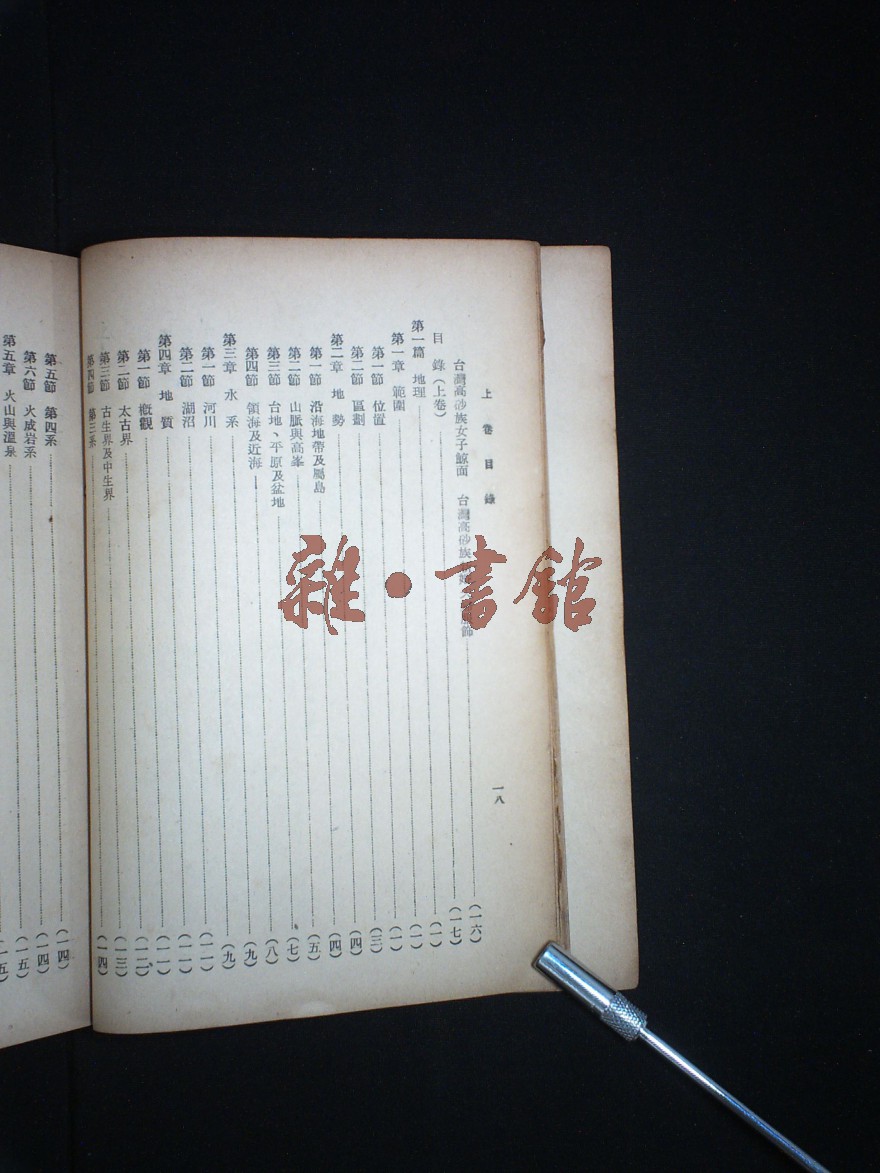 上卷目錄 一八
台灣高砂族女子鯨面 台灣高砂族 飾 (一六)
目錄(上卷) (一七)
第一篇 地理 (一)
第一章 範圍 (一)
第一節 位置 (一)
第二節 區劃 (三)
第二章 地勢 (四)
第一節 沿海地帶及屬島 (四)
第二節 山脈與高峯 (五)
第三節 台地、平原及盆地 (七)
第四節 領海及近海 (八)
第三章 水系 (九)
第一節 河川 (九)
第二節 湖沼 (一一)
第四章 地質 (一一)
第一節 概觀 (一一)
第二節 太古界 (一二)
第三節 古生界及中生界 (一三)
第四節 第三系 (一四)
第五節 第四系 (一四)
第六節 火成岩系 (一四)
第五章 火山與溫泉 (一五)
(一五)
雜·書館